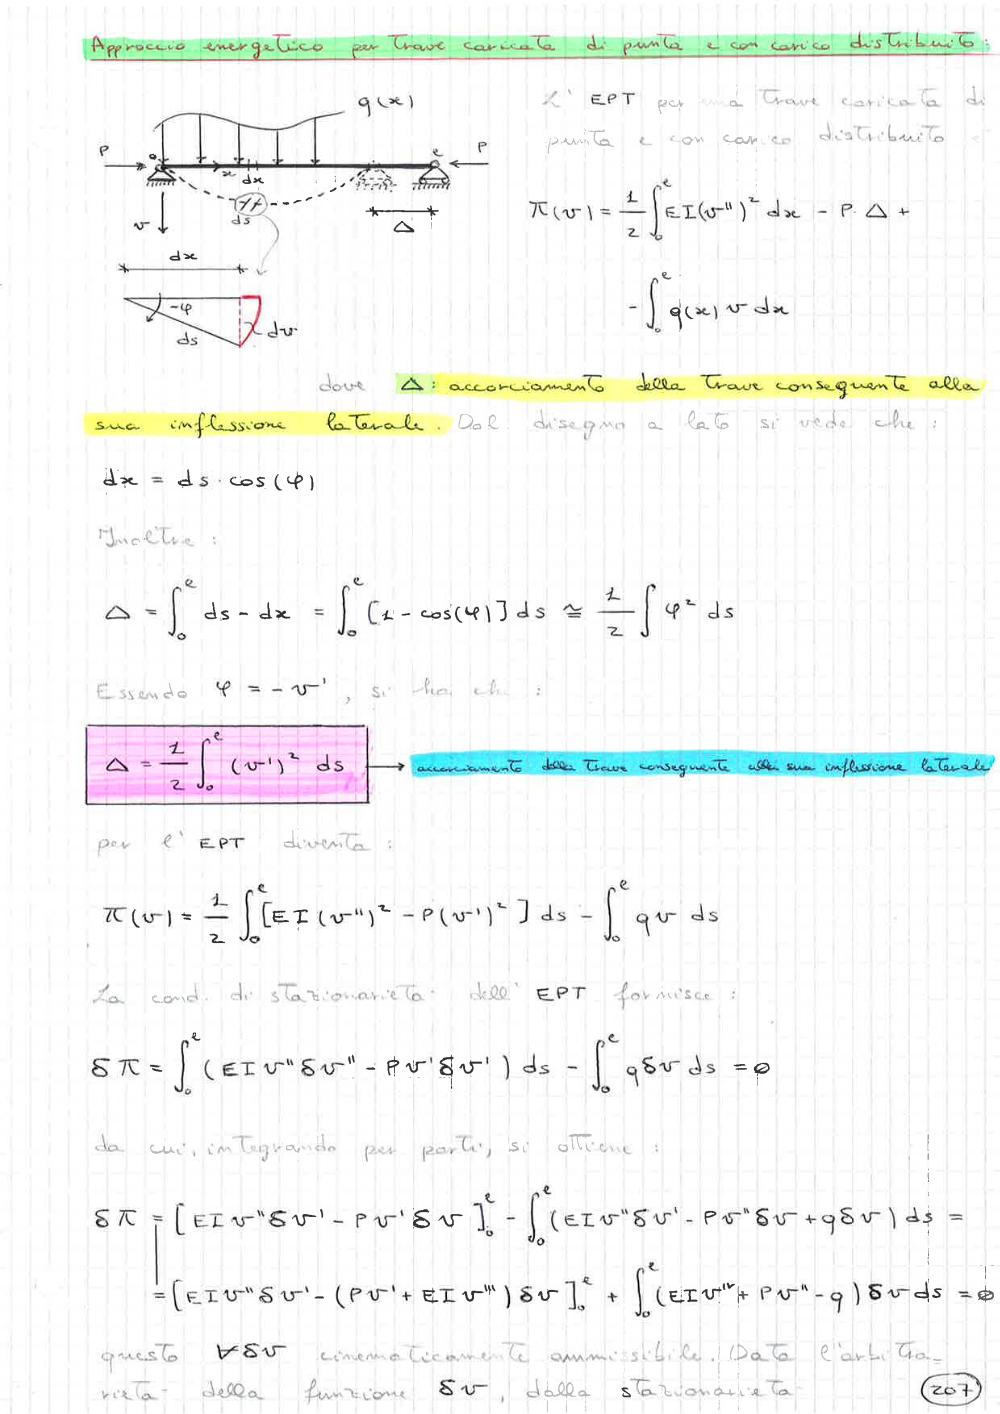 Approccio energetico per trave caricata di punta e con carico distribuito:
q(x)
L' EPT per una trave caricata di
punta e con carico distribuito è
P
P
o
e
x
dx
ds
v
Δ
π(v) = 1/2 ∫₀ᵉ EI(v'')² dx - P. Δ +
- ∫₀ᵉ q(x) v dx
dx
-φ
ds
dv
dove Δ: accorciamento della trave conseguente alla
sua inflessione laterale. Dal disegno a lato si vede che:
dx = ds · cos(φ)
Inoltre:
Δ = ∫₀ᵉ ds - dx = ∫₀ᵉ [1 - cos(φ)] ds ≅ 1/2 ∫ φ² ds
Essendo φ = - v', si ha che:
Δ = 1/2 ∫₀ᵉ (v')² ds → accorciamento della trave conseguente alla sua inflessione laterale
per l' EPT diventa:
π(v) = 1/2 ∫₀ᵉ [EI(v'')² - P(v')²] ds - ∫₀ᵉ qv ds
La cond. di stazionarietà dell' EPT fornisce:
δπ = ∫₀ᵉ (EI v''δv'' - Pv'δv') ds - ∫₀ᵉ qδv ds = ø
da cui, integrando per parti, si ottiene:
δπ = [EI v''δv' - Pv'δv]₀ᵉ - ∫₀ᵉ (EI v''δv' - Pv''δv + qδv) ds =
= [EI v''δv' - (Pv' + EI v''')δv]₀ᵉ + ∫₀ᵉ (EI vᴵⱽ + Pv'' - q) δv ds = ø
questo ∀δv cinematicamente ammissibile. Data l'arbitra-
rietà della funzione δv, dalla stazionarietà
207